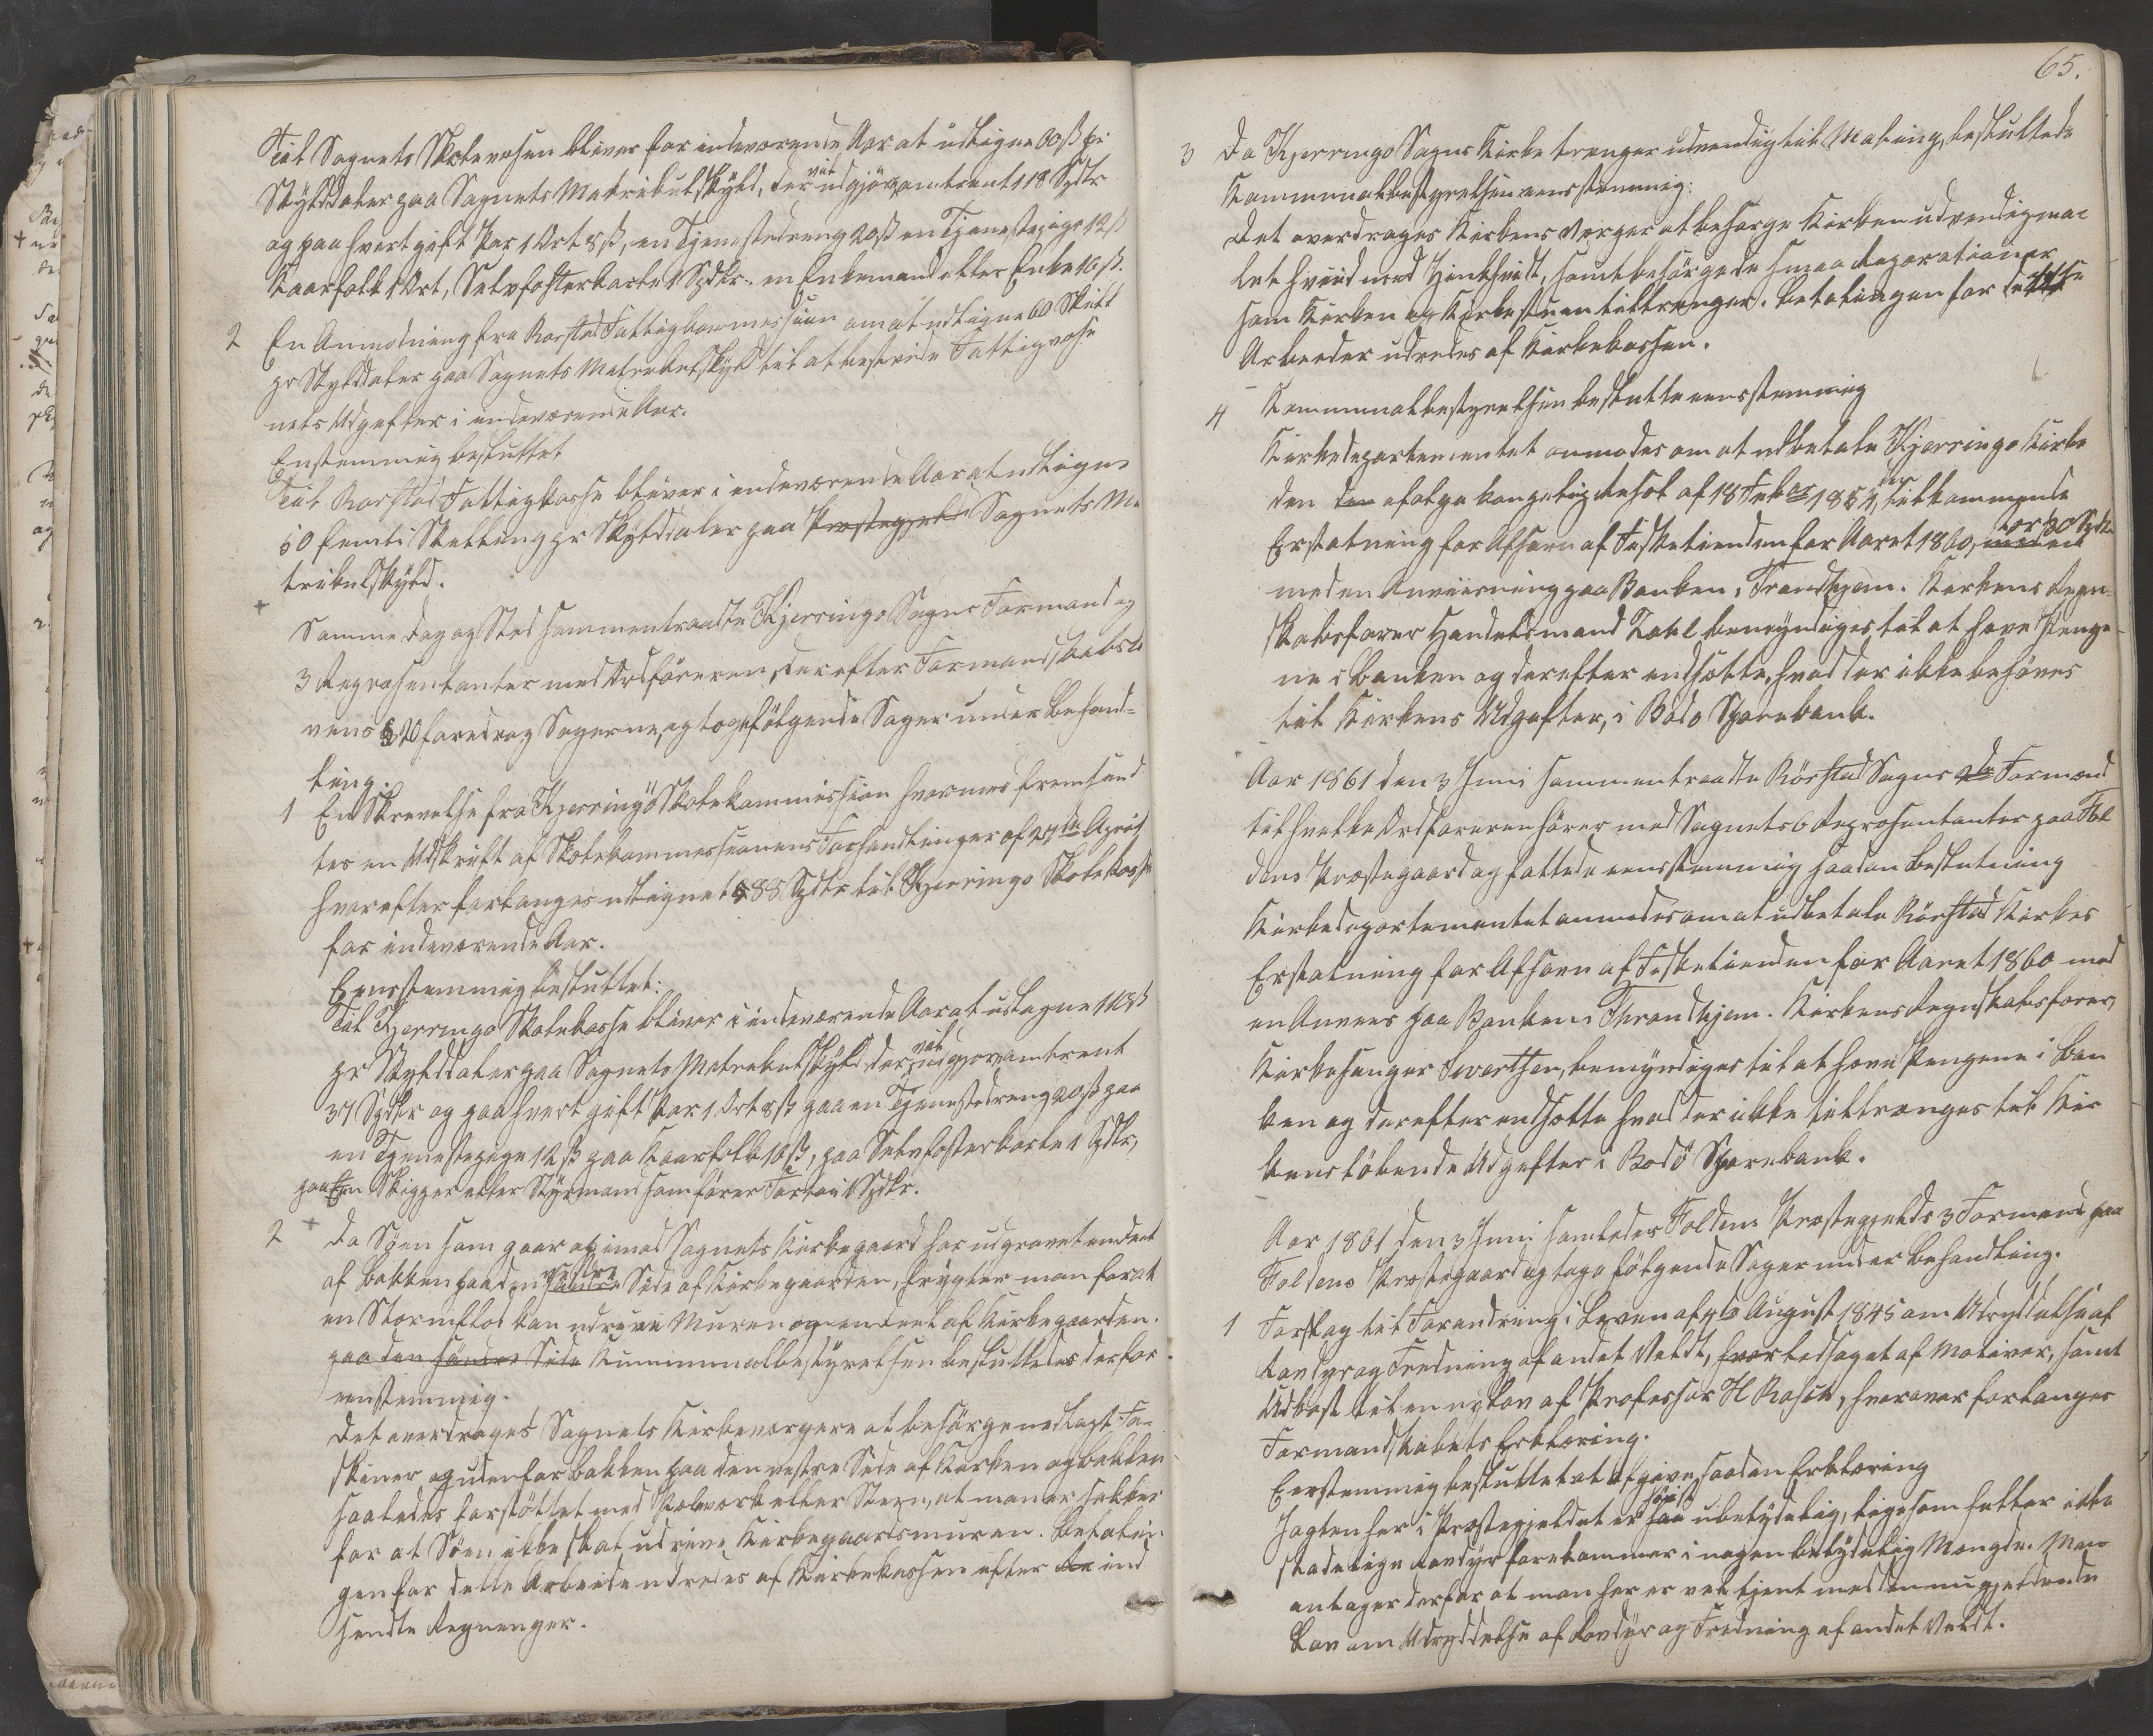 Til Sognets Skolevæsen bliver for indeværende Aar at udligne 60 ß pr
Skylddaler paa Sognets Matrikulskyld, der vil udgjøre omtrent 118 Spdlr
og paa hvert gift Par 1 Ort 8 ß, en Tjenestedreng 20 ß en Tjenestepige 12 ß
Kaarfolk 1 Ort, Selvfosterkarle 1 Spdlr. en Enkemand eller Enke 10 ß.
2 En Anmodning fra Rørstad Fattigkommission om at udligne 60 Skill
pr Skylddaler paa Sognets Matrikulskyld til at bestride Fattigvæse
nets Udgifter i indeværende Aar.
Enstemmig besluttet
Til Rørstad Fattigkasse bliver i indeværende Aar at udligne
50 femti Skilling pr Skylddaler paa Præstegjeld Sognets Ma
trikulskyld.
Samme Dag og Sted sammentraadte Kjerringø Sogns Formand og
3 Repræsentanter med Ordføreren, der efter Formandskabslo
vens § 20 foredrog Sagerne, og toge følgende Sager under Behand-
ling.
1 En Skrivelse fra Kjerringø Skolekommission hvormed fremsend
tes en Udskrift af Skolekommissionens Forhandlinger af 27de April
hvorefter forlanges udlignet 88 Spdlr til Kjerringø Skolekasse
for indeværende Aar.
Eensstemmig besluttet:
Til Kjerringø Skolekasse bliver i indeværende Aar at udligne 108 ß
pr Skylddaler paa Sognets Matrikulskyld, der vil udgjøre omtrent
37 Spdlr og paa hvert gift Par 1 Ort 8 ß paa en Tjenestedreng 20 ß paa
en Tjenestepige 12 ß paa Kaarfolk 10 ß, paa Selvfosterkarle 1 Spdlr,
paa En Skipper eller Styrmand som fører Fartøi 1 Spdlr.
2 Da Søen som gaar op imod Sognets Kirkegaard har udgravet endeel
af Bakken paa den søndre vestre Side af Kirkegaarden, frygter man for at
en Stormflod kan udrive Muren og en Deel af Kirkegaarden.
paa den søndre Side Kummunalbestyrelsen besluttedes derfor
eenstemmig.
Det overdrages Sognets Kirkeværgere at besørge nedlagt Fa-
skiner og udenfor Bakken paa den vestre Side af Kirken og Bakken
saaledes forstøttet med Pæleværk eller Steen, at man er sikker
for at Søen ikke skal udrive Kirkegaardsmuren. Betalin-
gen for dette Arbeide udredes af Kirkekassen efter de ind
sendte Regninger.
65.
3 Da Kjerringø Sogns Kirke trænger udvendig til Maling, besluttede
Kommunalbestyrelsen eensstemmig:
Det overdrages Kirkens Værger at besørge Kirken udvendig ma-
let hvid med Zinkhvidt, samt besørge de smaa Reparationer
som Kirken og Kirkestuen tiltrænger. Betalingen for disse
Arbeider udredes af Kirkekassen.
4 Kommunalbestyrelsen beslutte eensstemmig
Kirkedepartementet anmodes om at udbetale Kjerringø Kirke
den den ifølge kongelig Resol. af 18 Febar 1851, tilkommende
Erstatning for Afsavn af Fisketienden for Aaret 1860, 30 Spdlr
med en Anviisning paa Banken i Trondhjem. Kirkens Regn-
skabsfører Handelsmand Zahl bemyndiges til at hæve Penge-
ne i Banken og derefter indsætte, hvad der ikke behøves
til Kirkens Udgifter, i Bodø Sparebank.
Aar 1861 den 3 Juni sammentraadte Rørstad Sogns Formænd
til hvilke Ordføreren hører med Sognets 6 Repræsentanter paa Fol
dens Præstegaard og fattede eensstemmig saadan Beslutning
Kirkedepartementet anmodes om at udbetale Rørstad Kirkes
Erstatning for Afsavn af Fisketienden for Aaret 1860 med
en Anviis paa Banken i Throndhjem. Kirkens Regnskabsfører,
Kirkesanger Sivertsen, bemyndiges til at hæve Pengene i Ban
ken og derefter indsætte hvad der ikke tiltrænges til Kir
kens løbende Udgifter i Bodø Sparebank.
Aar 1861 den 3 Juni samledes Foldens Præstegjelds 3 Formænd paa
Foldens Præstegaard og toge følgende Sager under Behandling.
1 Forslag til Forandring i Loven af 4de August 1845 om Udryddelse af
Rovdyr og Fredning af andet Vildt, hvor ledsaget af Motiver, samt
Udkast til en ny Lov af Professor H Rasch, hvorover forlanges
Formandskabets Erklæring.
Eenstemmig besluttet at afgive saadan Erklæring
Jagten her i Præstegjeldet er saa høist ubetydelig, ligesom heller ikke
skadelige Rovdyr forekommer i nogen betydelig Mængde. Man
antager derfor at man her er vel tjent med den nu gjeldende
Lov om Udryddelse af Rovdyr og Fredning af andet Vildt.